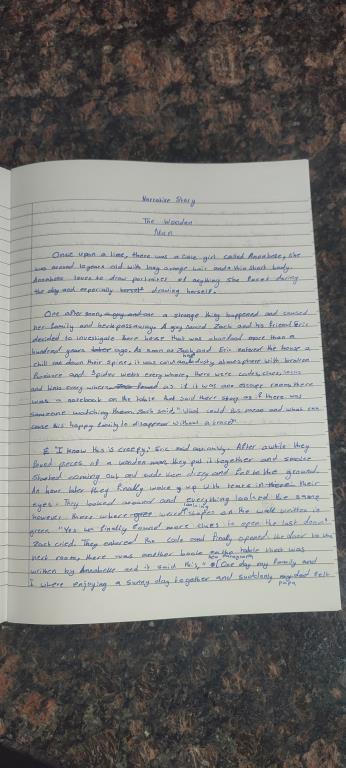 Narrative Story
The Wooden
Man
Once upon a time, there was a cute girl called Annabele, she
was around 10 years old with long orange hair and a thin short body.
Annabele loves to draw portraites of anything she faces during
the day and especially drawing herself.
One after noon, a strange thing happened and caused
her family and her to pass away. A guy named Zach and his friend Eric
decided to investigate there house that was abandoned more than a
hundred years ago. As soon as Zach and Eric entered the house a
chill ran down their spine, it was cold and had dusty atmosphere with broken
furniture and spider webs everywhere, there were codes, clues, locks
and hints every where as if it was an escape room there
was a notebook on the table that said there story as if there was
someone watching them. Zach said, "What could this mean and what can
cause this happy family to disappear without a trace?"
"I know this is creepy," Eric said. After awhile they
found pieces of a wooden man they put it together and smoke
started coming out and made them dizzy and fell to the ground.
An hour later they finally woke up with tears in their
eyes. They looked around and everything looked the same
however there where weird looking shapes on the wall written in
green. "Yes we finally found more clues to open the last door"
Zach cried. They entered the code and finally opened the door to the
next room, there was another book on the table that was
written by Annabelle and it said this, "One day my family and
I where enjoying a sunny day together and suddenly my papa felt